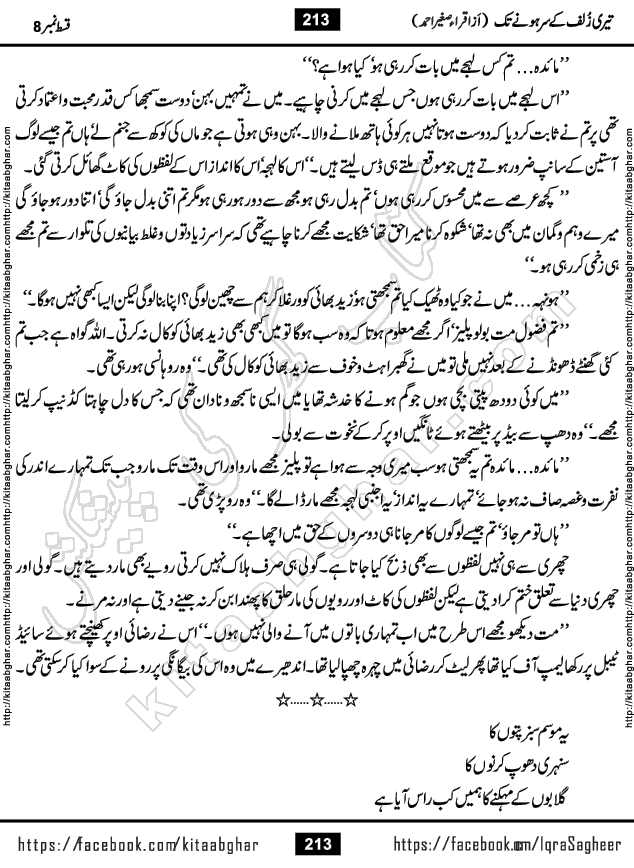 تیری زُلف کے سر ہونے تک (از اقراء صغیر احمد)
213
قسط نمبر 8
’’مائدہ... تم کس لہجے میں بات کر رہی ہو‘ کیا ہوا ہے؟‘‘
’’اس لہجے میں بات کر رہی ہوں جس لہجے میں کرنی چاہیے۔ میں نے تمہیں بہن‘ دوست سمجھا کس قدر محبت و اعتماد کرتی
تھی پر تم نے ثابت کر دیا کہ دوست ہوتا نہیں ہر کوئی ہاتھ ملانے والا۔ بہن وہی ہوتی ہے جو ماں کی کوکھ سے جنم لے‘ ہاں تم جیسے لوگ
آستین کے سانپ ضرور ہوتے ہیں جو موقع ملتے ہی ڈس لیتے ہیں۔‘‘ اس کا لہجہ‘ اس کا انداز اس کے لفظوں کی کاٹ گھائل کرتی گئی۔
’’کچھ عرصے سے میں محسوس کر رہی ہوں‘ تم بدل رہی ہو مجھ سے دور ہو رہی ہو مگر تم اتنی بدل جاؤ گی‘ اتنا دور ہو جاؤ گی
میرے وہم و گمان میں بھی نہ تھا‘ شکوہ کرنا میرا حق تھا‘ شکایت مجھے کرنا چاہیے تھی کہ سراسر زیادتوں و غلط بیانیوں کی تلوار سے تم مجھے
ہی زخمی کر رہی ہو۔‘‘
’’ہونہہ... میں نے جو کیا وہ ٹھیک کیا تم سمجھتی ہو‘ زید بھائی کو ورغلا کر ہم سے چھین لوگی؟ اپنا بنا لوگی لیکن ایسا کبھی نہیں ہوگا۔‘‘
’’تم فضول مت بولو پلیز‘ اگر مجھے معلوم ہوتا کہ وہ سب ہوگا تو میں کبھی بھی زید بھائی کو کال نہ کرتی۔ اللہ گواہ ہے جب تم
کئی گھنٹے ڈھونڈنے کے بعد نہیں ملی تو میں نے گھبراہٹ و خوف سے زید بھائی کو کال کی تھی۔‘‘ وہ روہانسی ہو رہی تھی۔
’’میں کوئی دودھ پیتی بچی ہوں جو گم ہونے کا خدشہ تھا یا میں ایسی ناسمجھ و نادان تھی کہ جس کا دل چاہتا کڈنیپ کر لیتا
مجھے۔‘‘ وہ دھپ سے بیڈ پر بیٹھتے ہوئے ٹانگیں اوپر کر کے نخوت سے بولی۔
’’مائدہ... مائدہ تم یہ سمجھتی ہو سب میری وجہ سے ہوا ہے تو پلیز مجھے مارو اور اس وقت تک مارو جب تک تمہارے اندر کی
نفرت و غصہ صاف نہ ہو جائے‘ تمہارے یہ انداز‘ یہ اجنبی لہجہ مجھے مار ڈالے گا۔‘‘ وہ رو پڑی تھی۔
’’ہاں تو مر جاؤ‘ تم جیسے لوگوں کا مر جانا ہی دوسروں کے حق میں اچھا ہے۔‘‘
چھری سے ہی نہیں لفظوں سے بھی ذبح کیا جاتا ہے۔ گولی ہی صرف ہلاک نہیں کرتی رویے بھی مار دیتے ہیں۔ گولی اور
چھری دنیا سے تعلق ختم کرا دیتی ہے لیکن لفظوں کی کاٹ اور رویوں کی مار حلق کا پھندا بن کر نہ جینے دیتی ہے اور نہ مرنے۔
’’مت دیکھو مجھے اس طرح میں اب تمہاری باتوں میں آنے والی نہیں ہوں۔‘‘ اس نے رضائی اوپر کھینچتے ہوئے سائیڈ
ٹیبل پر رکھا لیمپ آف کیا تھا پھر لیٹ کر رضائی میں چہرہ چھپا لیا تھا۔ اندھیرے میں وہ اس کی بیگانگی پر رونے کے سوا کیا کر سکتی تھی۔
☆......☆......☆
یہ موسم سبز پتوں کا
سنہری دھوپ کرنوں کا
گلابوں کے مہکنے کا ہمیں کب راس آیا ہے
کتاب گھر کی پیشکش
kitaabghar.com
http://kitaabghar.com
http://kitaabghar.com
https://facebook.com/kitaabghar
213
https://facebook.com/IqraSagheer